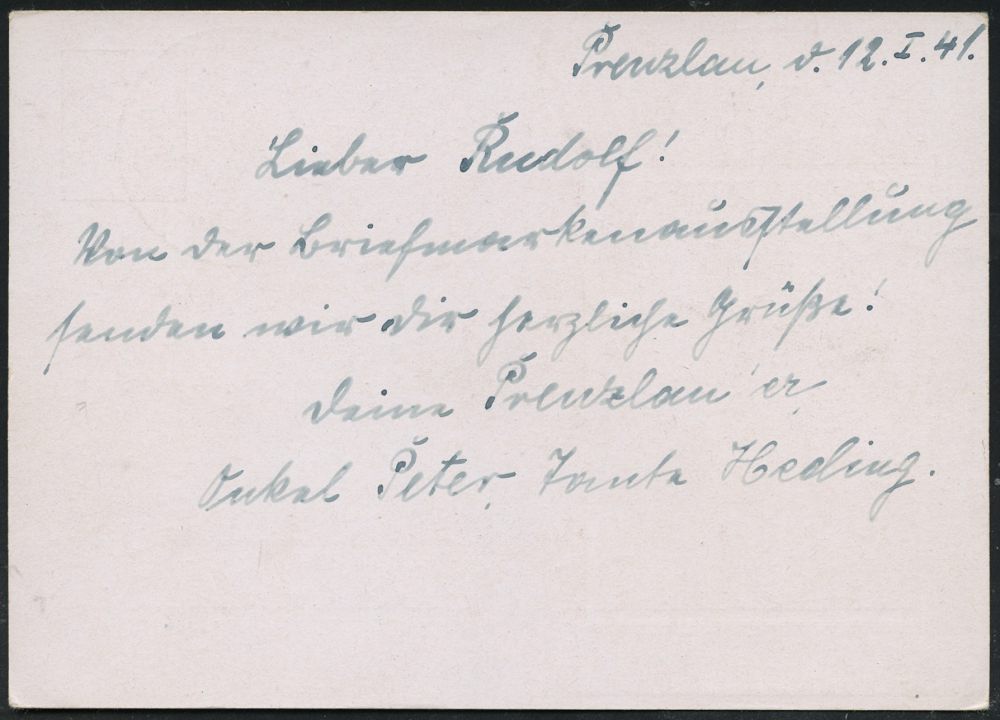 Prenzlau, d. 12. I. 41.
Lieber Rudolf!
Von der Briefmarkenausstellung
senden wir dir herzliche Grüße!
Deine Prenzlau'er
Onkel Peter, Tante